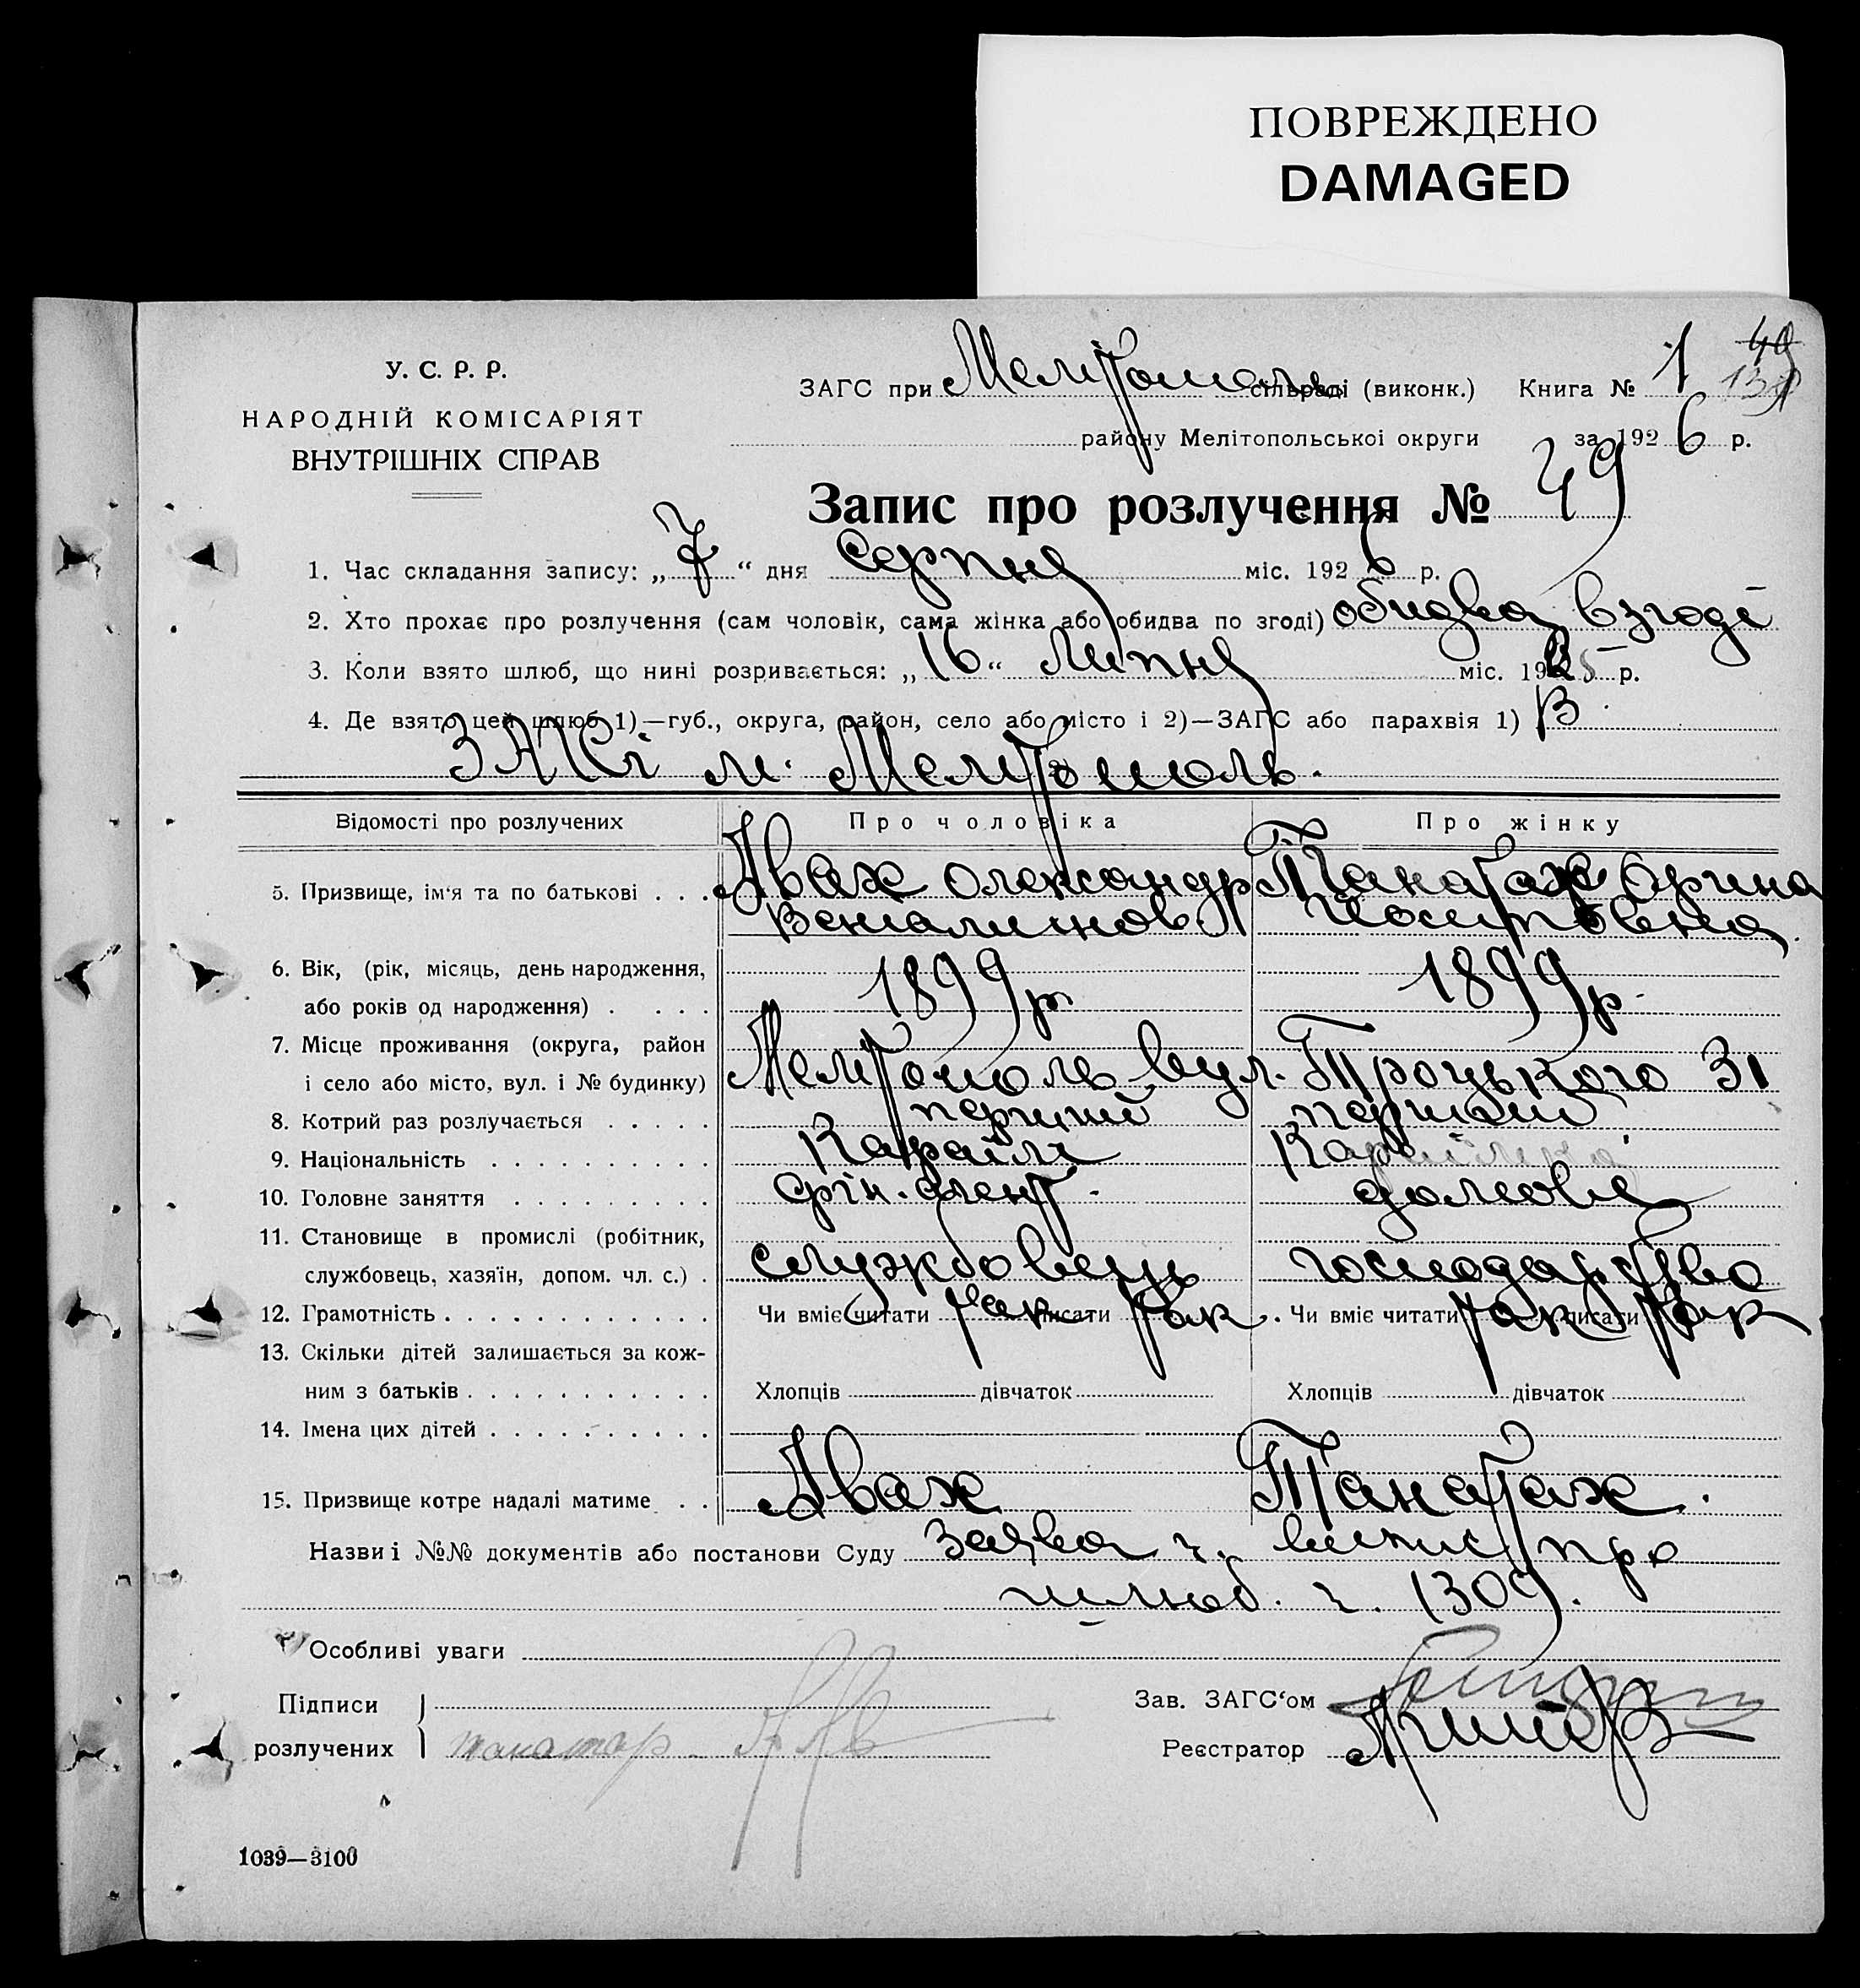 ПОВРЕЖДЕНО
DAMAGED
У. С. Р. Р.
НАРОДНІЙ КОМІСАРІЯТ
ВНУТРІШНІХ СПРАВ
ЗАГС при Мелітополь сільраді (виконк.) Книга № 1
району Мелітопольської округи за 1926 р.
Запис про розлучення № 49
1. Час складання запису: „7“ дня Серпня міс. 1926 р.
2. Хто прохає про розлучення (сам чоловік, сама жінка або обидва по згоді) обидва в згоді
3. Коли взято шлюб, що нині розривається: „16“ Липня міс. 1925 р.
4. Де взято цей шлюб 1)—губ., округа, район, село або місто і 2)—ЗАГС або парахвія 1) В
ЗАГСі м. Мелітополь.
Відомості про розлучених Про чоловіка Про жінку
5. Призвище, ім'я та по батькові . . . Авах Олександр Танатах Орина
Веніаминов. Йосиповна
6. Вік, (рік, місяць, день народження,
або років од народження) . . . . 1899 р. 1899 р.
7. Місце проживання (округа, район
і село або місто, вул. і № будинку) Мелітополь вул. Троцького 31
8. Котрий раз розлучається . . . . . перший перший
9. Національність . . . . . . . . . . Караїм Караїмка
10. Головне заняття . . . . . . . . . фін. агент. домове
11. Становище в промислі (робітник,
службовець, хазяїн, допом. чл. с.) . службовець господарство
12. Грамотність . . . . . . . . . . . . Чи вміє читати так писати так. Чи вміє читати так писати так
13. Скільки дітей залишається за кож-
ним з батьків . . . . . . . . . . . Хлопців дівчаток Хлопців дівчаток
14. Імена цих дітей . . . . . . . . . .
15. Призвище котре надалі матиме . . Авах Танатах.
Назви і №№ документів або постанови Суду Заява ч. випис про
шлюб. ч. 1309.
Особливі уваги
Підписи Зав. ЗАГС'ом
розлучених Реєстратор
1039—3100